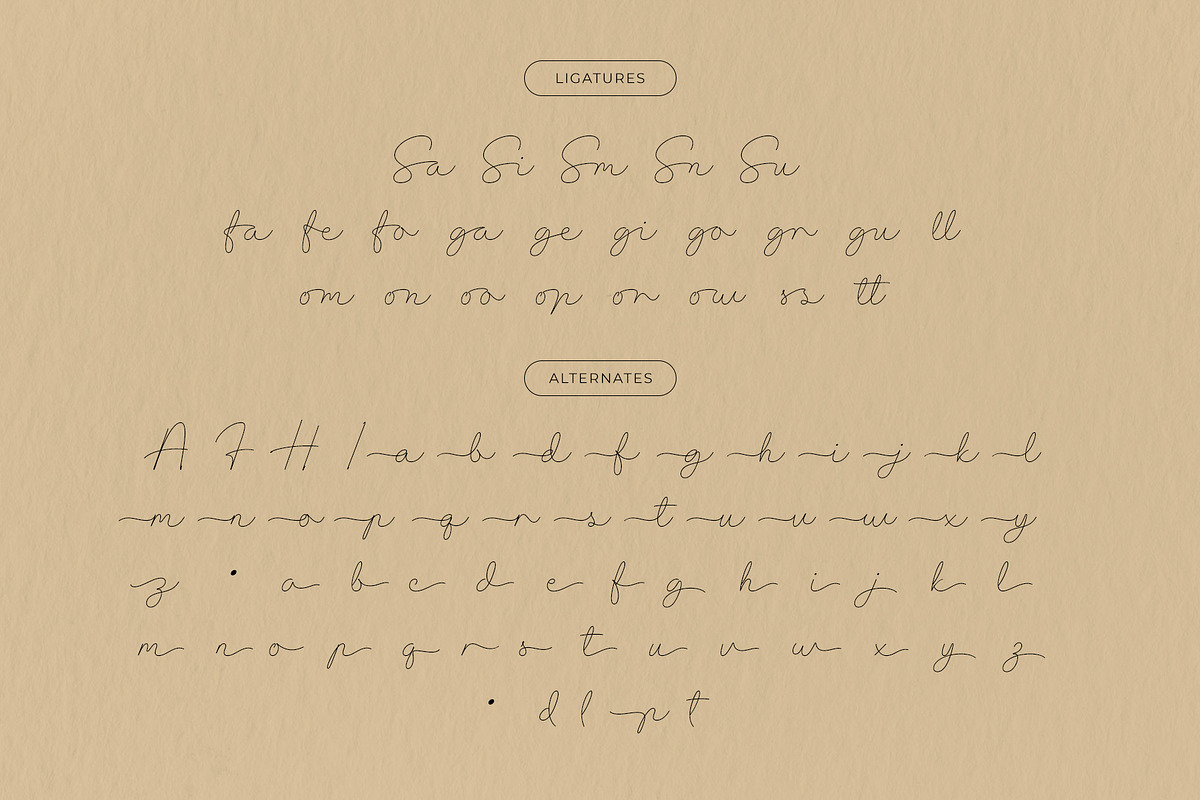 LIGATURES
Sa Si Sm Sn Su
fa fe fo ga ge gi go gr gu ll
om on oo op or ow ss tt
ALTERNATES
A F H I a b d f g h i j k l
m n o p q r s t u v w x y
z • a b c d e f g h i j k l
m n o p q r s t u v w x y z
• d l p t